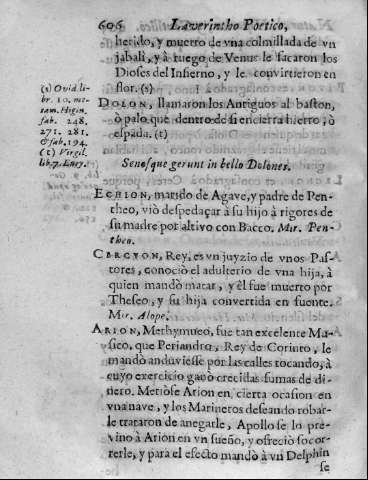 606 Lawerintho Poetico,
herido, y muerto de vna colmillada de vn
jabalì, y à ruego de Venus le sacaron los
Dioses del Infierno, y le convirtieron en
flor. (s)
(s) Ovid. li-
br. 10. me-
tam. Higin.
fab. 248.
271. 281.
& fab. 194.
(t) Virgil.
lib. 7. Eney.
DOLON, llamaron los Antiguos al baston,
ò palo que dentro de si encierra hierro, ò
espada. (t)
Senosque gerunt in bello Dolones.
ECHION, marido de Agave, y padre de Pen-
theo, viò despedaçar à su hijo à rigores de
su madre por altivo con Bacco. Mir. Pen-
theo.
CERCYON, Rey, es vn juyzio de vnos Pas-
tores, conociò el adulterio de vna hija, à
quien mandò matar, y èl fue muerto por
Theseo, y su hija convertida en fuente.
Mir. Alope.
ARION, Methymneo, fue tan excelente Mu-
sico, que Periandro, Rey de Corinto, le
mandò anduviesse por las calles tocando, à
cuyo exercicio ganò crecidas sumas de di-
nero. Metiòse Arion en cierta ocasion en
vna nave, y los Marineros deseando robar-
le trataron de anegarle, Apollo se lo pre-
vino à Arion en vn sueño, y ofreciò socor-
rerle, y para el efecto mandò à vn Delphin
se